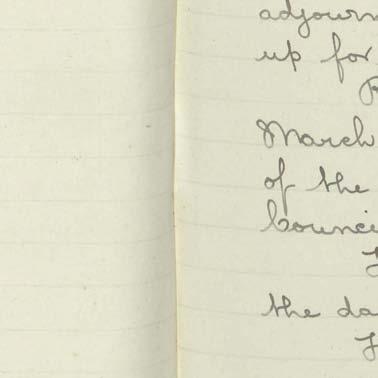 adjourn
up for
March
of the
Counci
the da